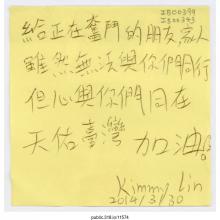 IB00399
IS00343
給正在奮鬥的朋友、家人
雖然無法與你們同行
但心與你們同在
天佑臺灣 加油!
Kimmy Lin
2014/3/30
public.318.io/11574